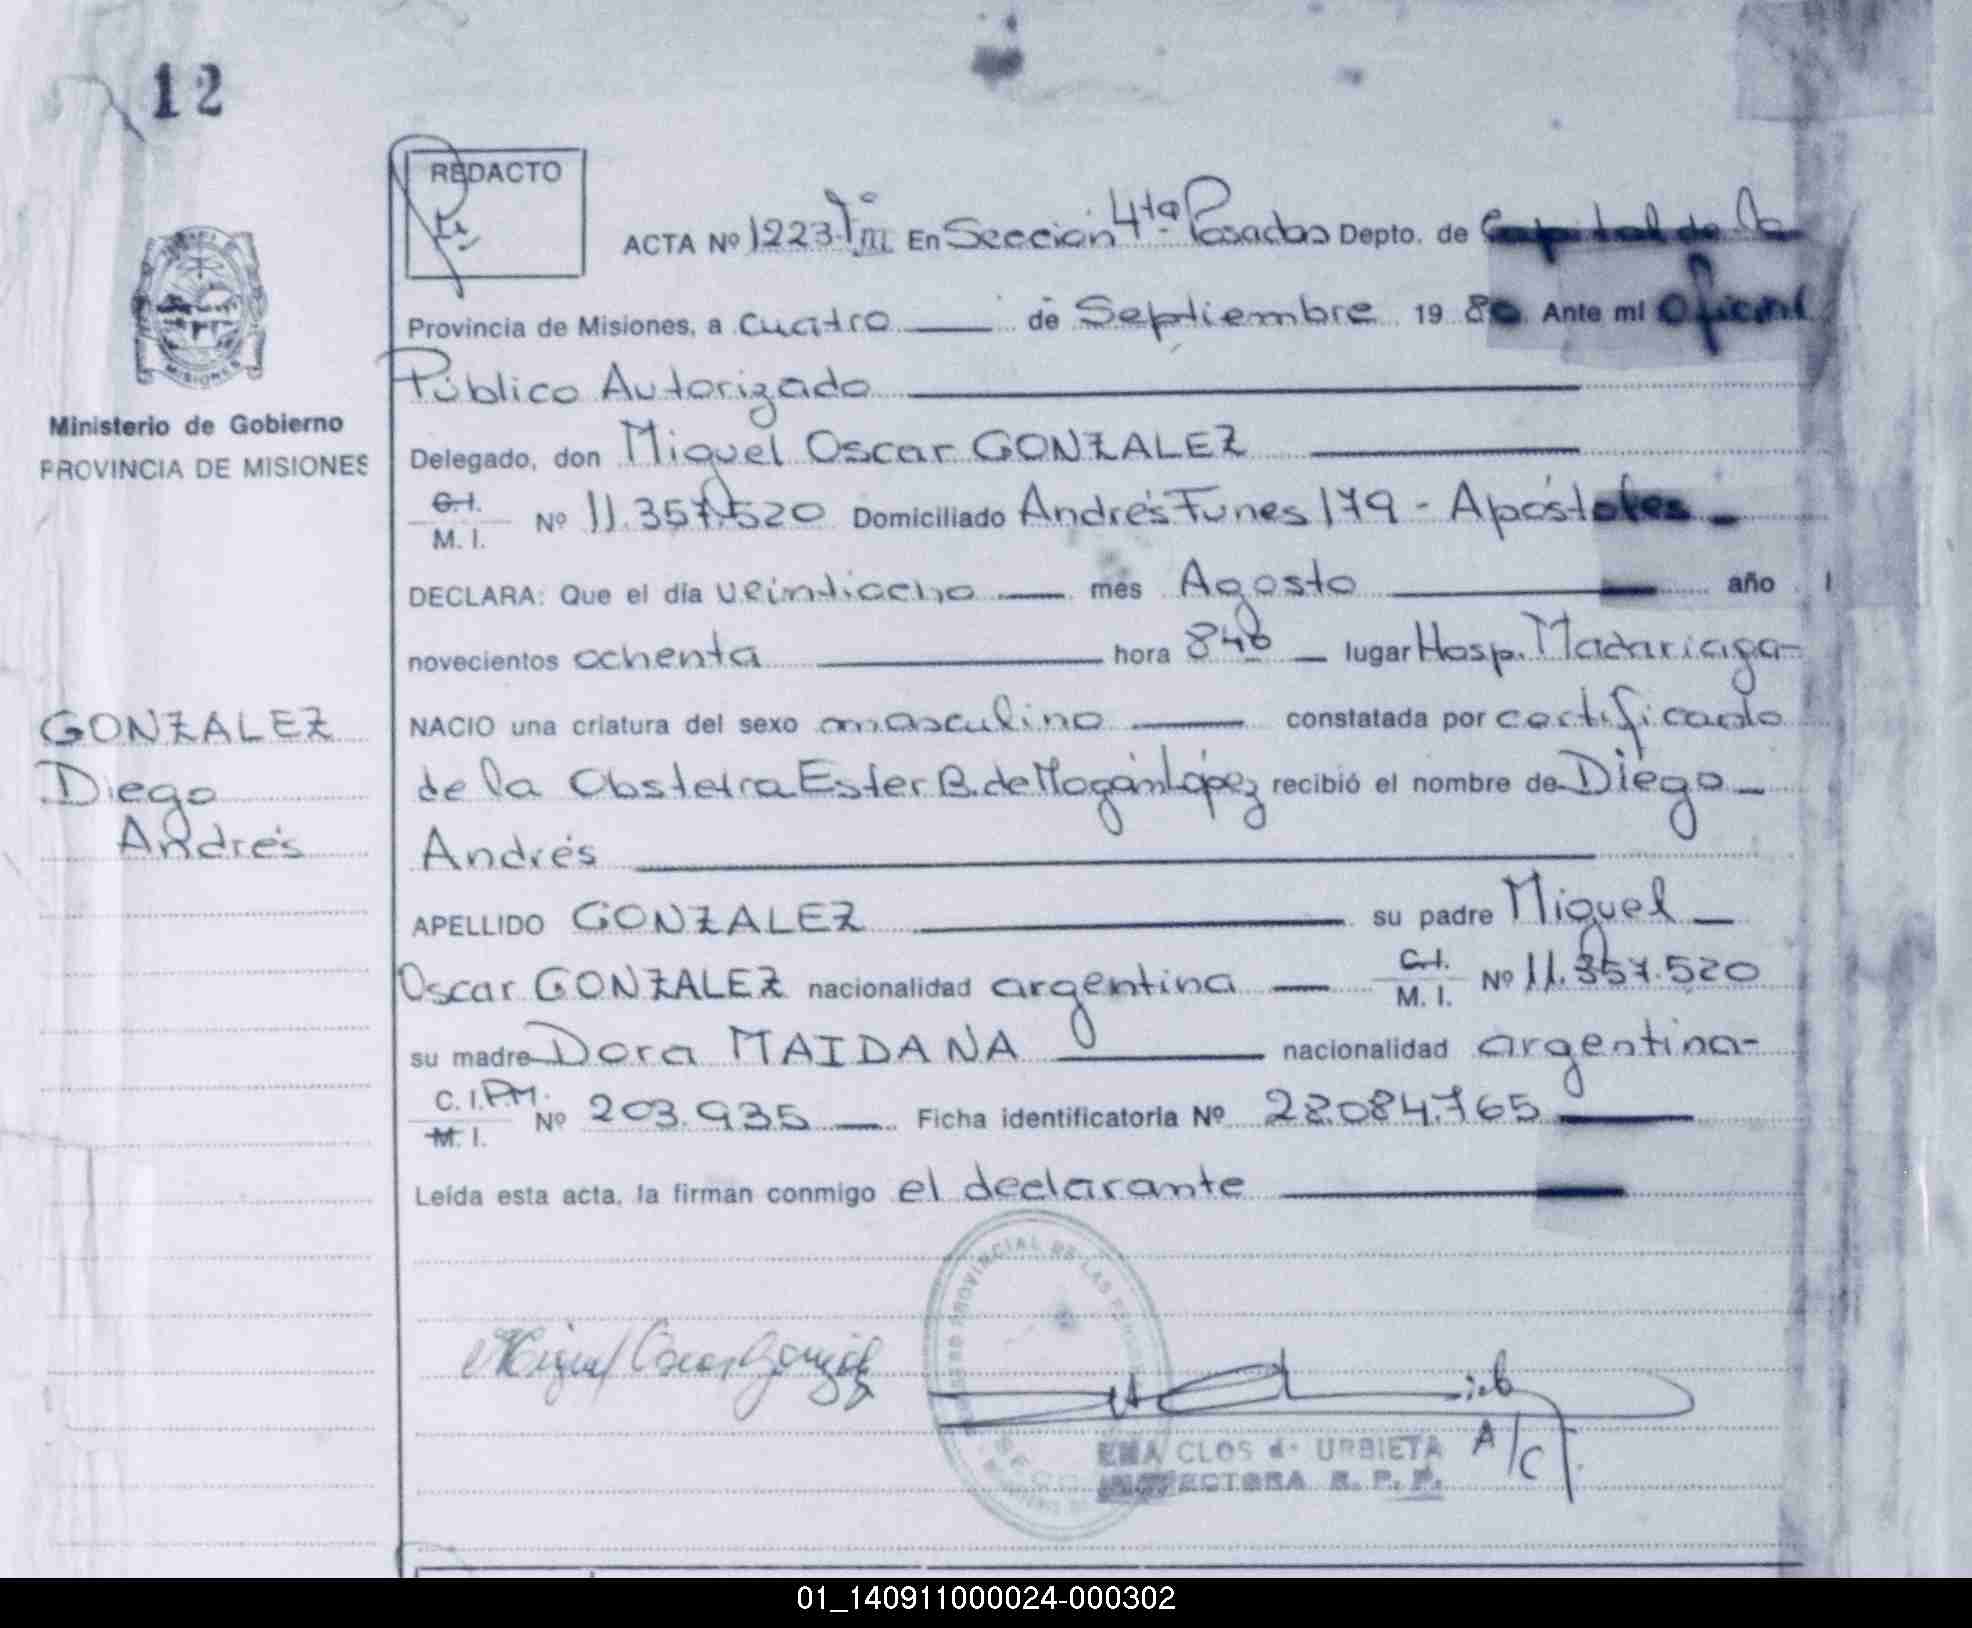 12
REDACTO
ACTA Nº 1223 Tº III En Sección 4ta. Posadas Depto. de Capital de la
Provincia de Misiones, a cuatro de Septiembre 1980 Ante mí Oficial
Público Autorizado
Delegado, don Miguel Oscar GONZALEZ
C. I.
M. I. Nº 11.357.520 Domiciliado Andrés Funes 179 - Apóstoles
DECLARA: Que el día veintiocho mes Agosto año 1
novecientos ochenta hora 840 lugar Hosp. Madariaga-
NACIO una criatura del sexo masculino constatada por certificado
de la Obstetra Ester B. de López recibió el nombre de Diego
Andrés
APELLIDO GONZALEZ su padre Miguel
Oscar GONZALEZ nacionalidad argentina C. I. M. I. Nº 11.357.520
su madre Dora MAIDANA nacionalidad argentina-
C. I. P.M.
M. I. Nº 203.935 Ficha identificatoria Nº 28.084.765
Leída esta acta, la firman conmigo el declarante
Miguel Oscar González
EMA CLOS de URBIETA A/C
INSPECTORA R. P. P.
MISIONES
Ministerio de Gobierno
PROVINCIA DE MISIONES
GONZALEZ
Diego
Andrés
01_140911000024-000302